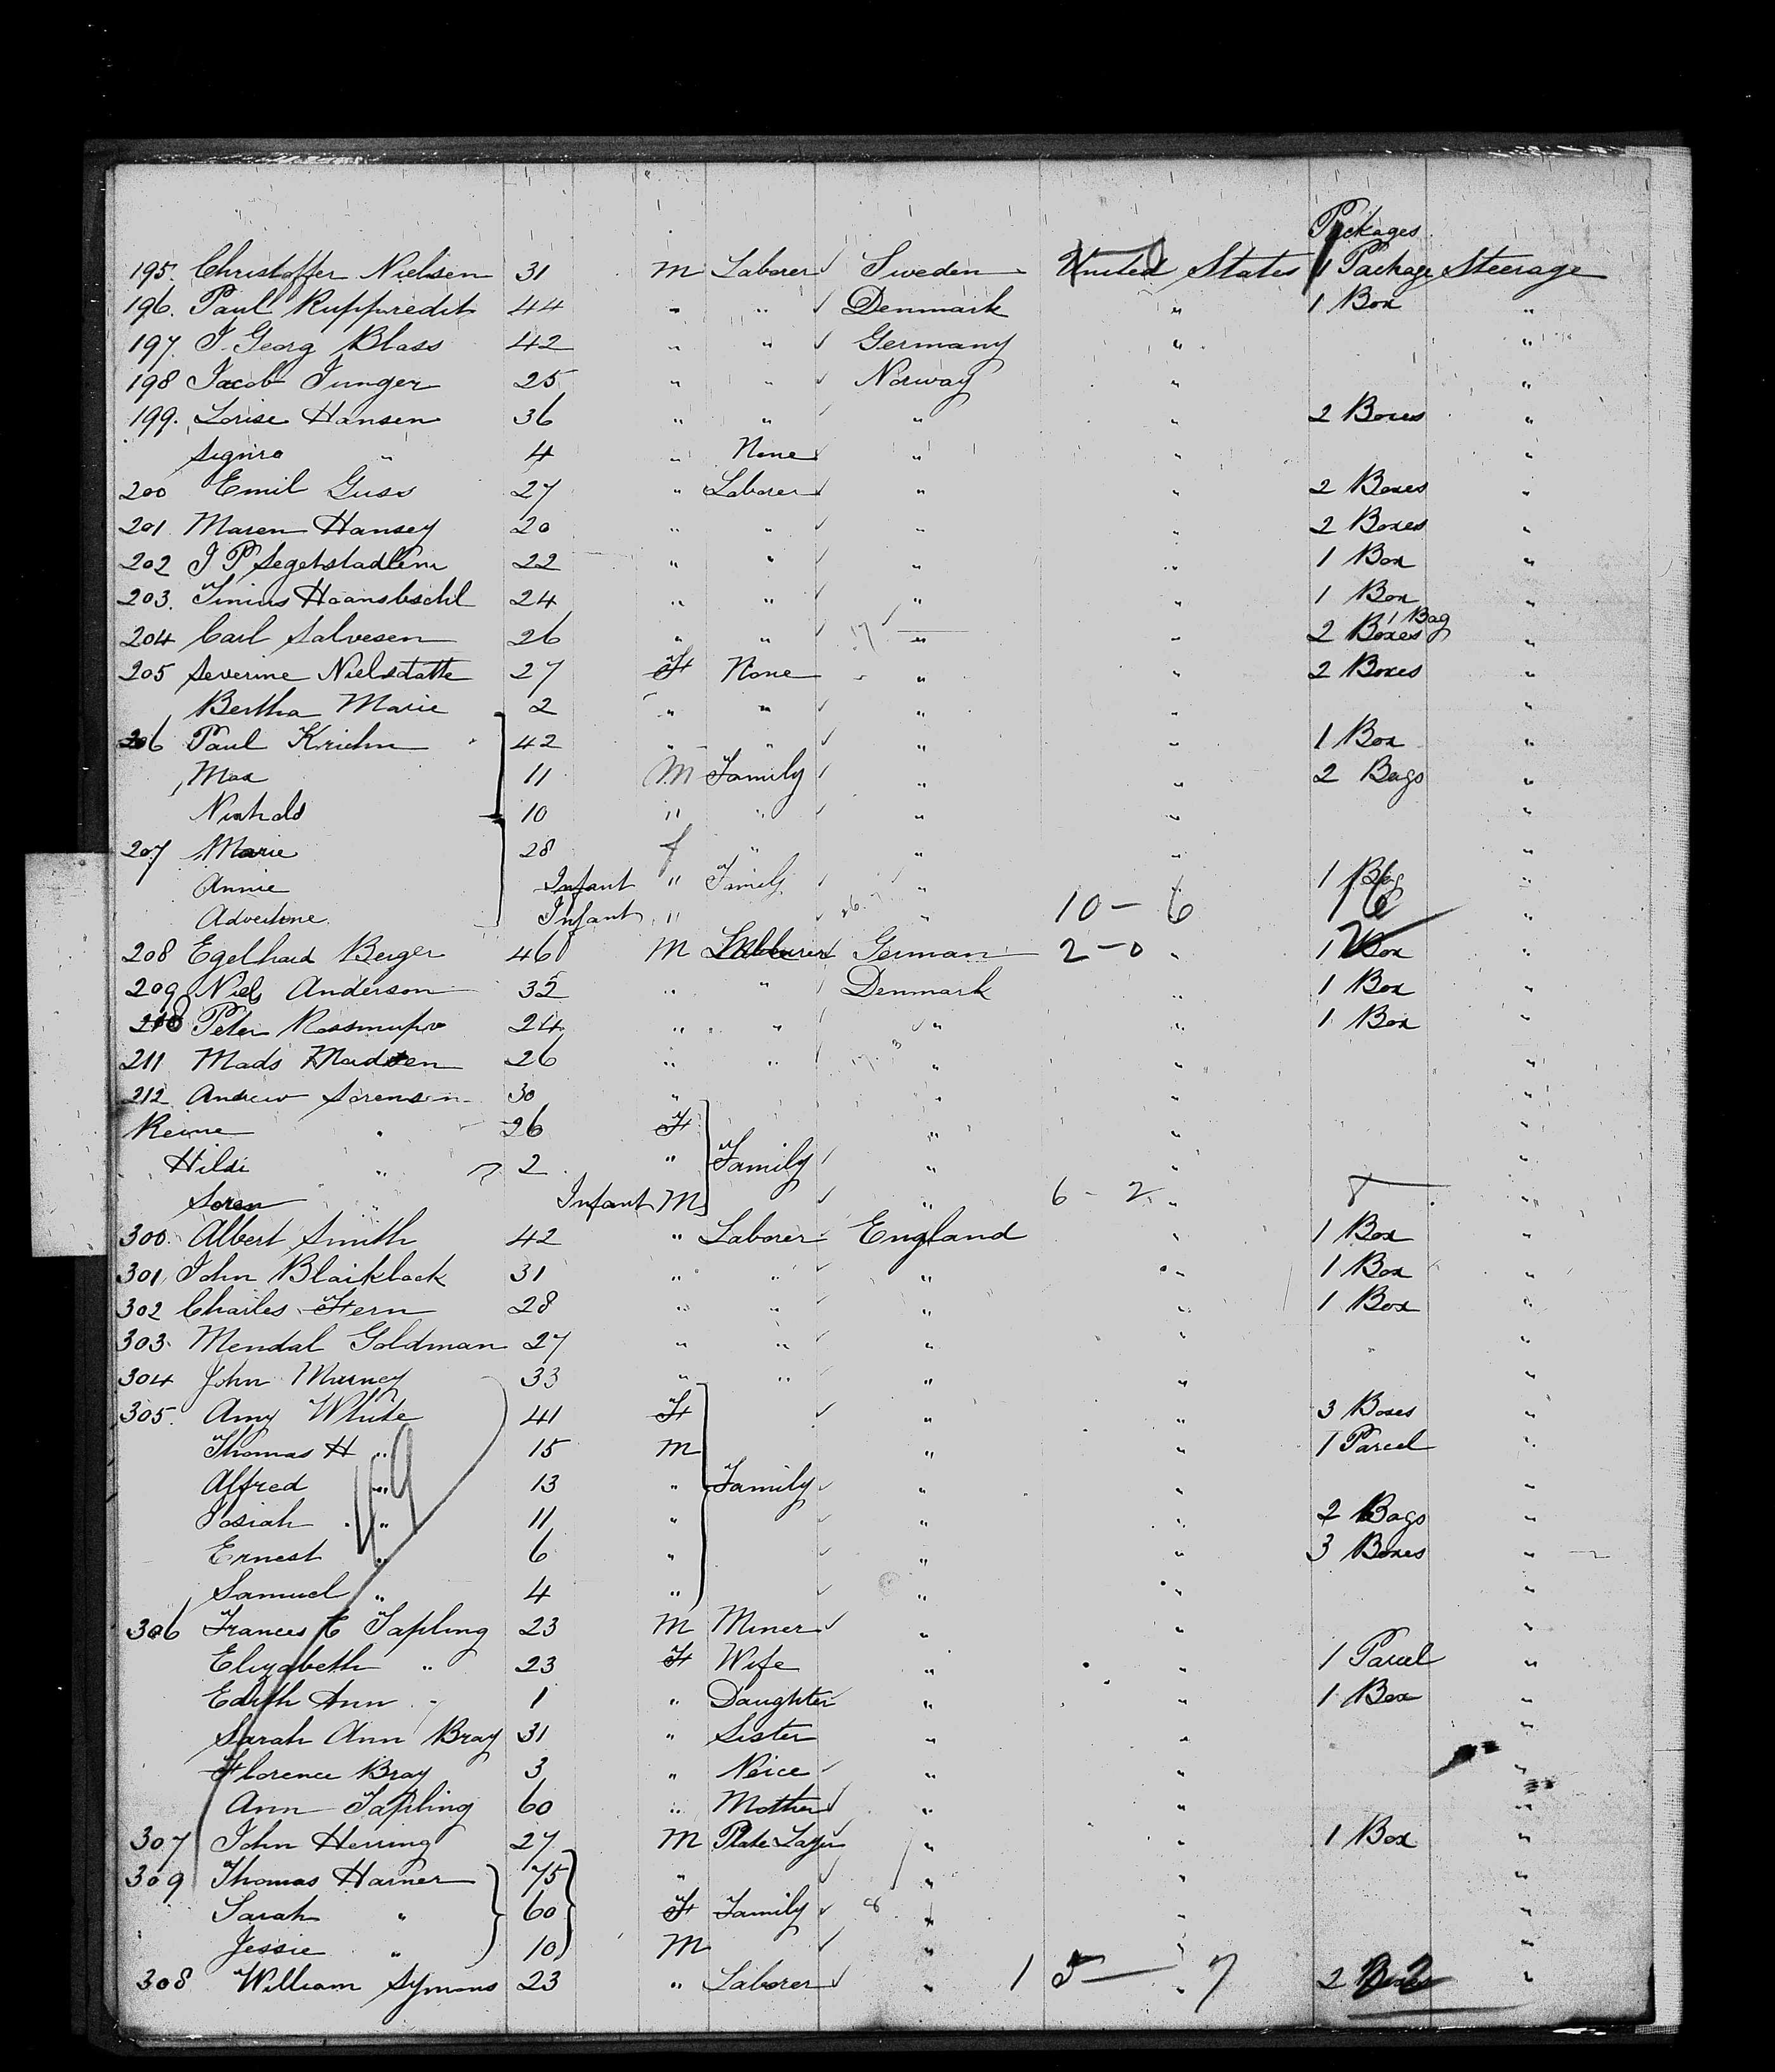 Packages
195. Christoffer Nielsen 31 M Laborer Sweden United States 1 Package Steerage
196. Paul Ruppredit 44 " " Denmark " 1 Box "
197. J. Georg Blass 42 " " Germany " "
198 Jacob Junger 25 " " Norway " "
199. Lorise Hansen 36 " " " " 2 Boxes "
Signra " 4 " None " " "
200 Emil Guss 27 " Laborer " " 2 Boxes "
201 Maren Hansey 20 " " " " 2 Boxes "
202 J P 22 " " " " 1 Box "
203. 24 " " " " 1 Box "
1 Bag
204 Carl Salvesen 26 " " " " 2 Boxes "
205 Severine 27 F None " " 2 Boxes "
Bertha Marie 2 " " " " "
206 Paul Kriehn 42 " " " " 1 Box "
Max 11 M Family " " 2 Bags "
10 " " " " "
207 Marie 28 f " " " "
Annie Infant " Family " " 1 "
Infant " " 10 - 6 16 "
208 Egelhard Berger 46 M Laborer German 2 - 0 " 1 Box "
209 Niels Anderson 35 " " Denmark " 1 Box "
210 Peter 24 " " " " 1 Box "
211 Mads Madsen 26 " " " " "
212 Andrew Sorensen 30 " " " "
Reine " 26 F " " "
Hildi " 2 " Family " " "
Soren " Infant M " 6 - 2 " 8 "
300. Albert Smith 42 " Laborer England " 1 Box "
301 John Blaiklock 31 " " " " 1 Box "
302 Charles Hern 28 " " " " 1 Box "
303. Mendal Goldman 27 " " " " "
304 John Murney 33 " " " " "
305. Amy White 41 F " " 3 Boxes "
Thomas H " 15 M " " 1 Parcel "
Alfred " 13 " Family " " "
Josiah " 11 " " " 2 Bags "
Ernest " 6 " " " 3 Boxes "
Samuel " 4 " " " "
306 Frances C Tapling 23 M Miner " " "
Elizabeth " 23 F Wife " " 1 Parcel "
Edith Ann " 1 " Daughter " " 1 Box "
Sarah Ann Bray 31 " Sister " " "
Florence Bray 3 " Neice " " "
Ann Tapling 60 " Mother " " "
307 John Herring 27 M Plate Layer " " 1 Box "
309 Thomas Harner 75 " " " "
Sarah " 60 F Family " " "
Jessie " 10 M " " "
308 William Symons 23 " Laborer " 15 - 7 " 2 22 "